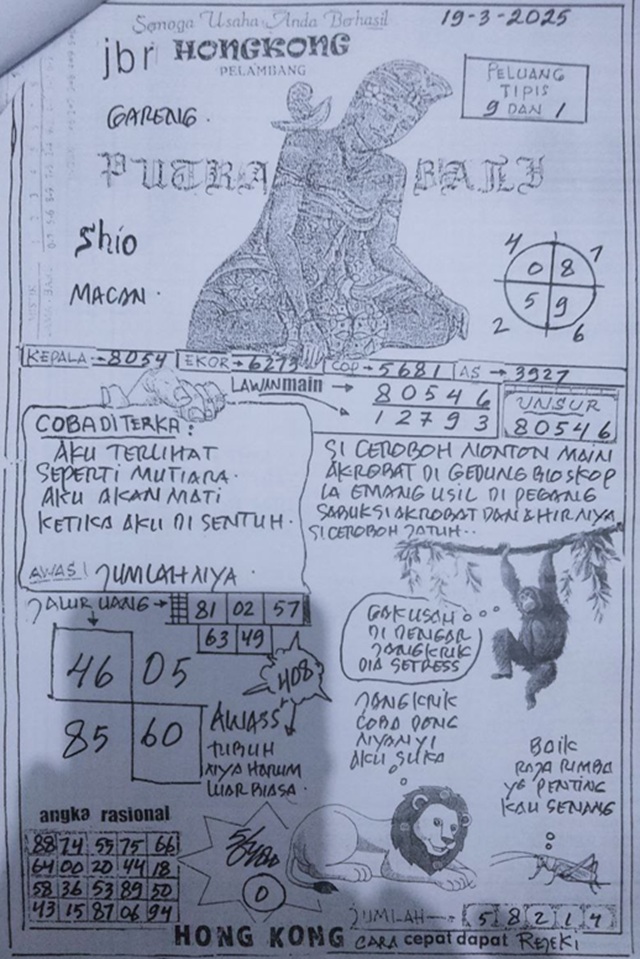 Semoga Usaha Anda Berhasil
19-3-2025
jbr HONGKONG
PELAMBANG
PELUANG
TIPIS
9 DAN 1
GARENG.
PUTRA BALI
Shio
MACAN.
4 7
0 8
5 9
2 6
KEPALA → 8054
EKOR → 6279
COP → 5681
AS → 3927
LAWAN main → 80546
12793
UNSUR
80546
COBA DITERKA:
AKU TERLIHAT
SEPERTI MUTIARA.
AKU AKAN MATI
KETIKA AKU DI SENTUH.
AWAS! JUMLAHNYA.
SI CEROBOH NONTON MAIN
AKROBAT DI GEDUNG BIOSKOP
IA EMANG USIL DI PEGANG
SABUK SI AKROBAT DAN AKHIRNYA
SI CEROBOH JATUH..
JALUR UANG → 81 02 57
63 49
46 05
85 60
408
AWASS
TUBUH
NYA HARUM
LUAR BIASA.
GAK USAH
DI DENGAR
JANGKRIK
DIA SETRESS
JANGKRIK
COBA DONG
NYANYI
AKU SUKA
BAIK
RAJA RIMBA
YG PENTING
KAU SENANG
angka rasional
88 74 55 75 66
64 00 20 44 18
58 36 53 89 50
43 15 87 06 94
0
JUMLAH → 5 8 2 1 4
HONG KONG CARA cepat dapat REJEKI